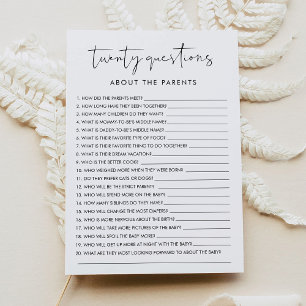 twenty questions
ABOUT THE PARENTS
1. HOW DID THE PARENTS MEET?
2. HOW LONG HAVE THEY BEEN TOGETHER?
3. HOW MANY CHILDREN DO THEY WANT?
4. WHAT IS MOMMY-TO-BE'S MIDDLE NAME?
5. WHAT IS DADDY-TO-BE'S MIDDLE NAME?
6. WHAT IS THEIR FAVORITE TYPE OF FOOD?
7. WHAT IS THEIR FAVORITE THING TO DO TOGETHER?
8. WHAT IS THEIR DREAM VACATION?
9. WHO IS THE BETTER COOK?
10. WHO WEIGHED MORE WHEN THEY WERE BORN?
11. DO THEY PREFER CATS OR DOGS?
12. WHO WILL BE THE STRICT PARENT?
13. WHO WILL SPEND MORE ON THE BABY?
14. HOW MANY SIBLINGS DO THEY HAVE?
15. WHO WILL CHANGE THE MOST DIAPERS?
16. WHO IS MORE NERVOUS ABOUT THE BIRTH?
17. WHO WILL TAKE MORE PICTURES OF THE BABY?
18. WHO WILL SPOIL THE BABY MORE?
19. WHO WILL GET UP MORE AT NIGHT WITH THE BABY?
20. WHAT ARE THEY MOST LOOKING FORWARD TO ABOUT THE BABY?